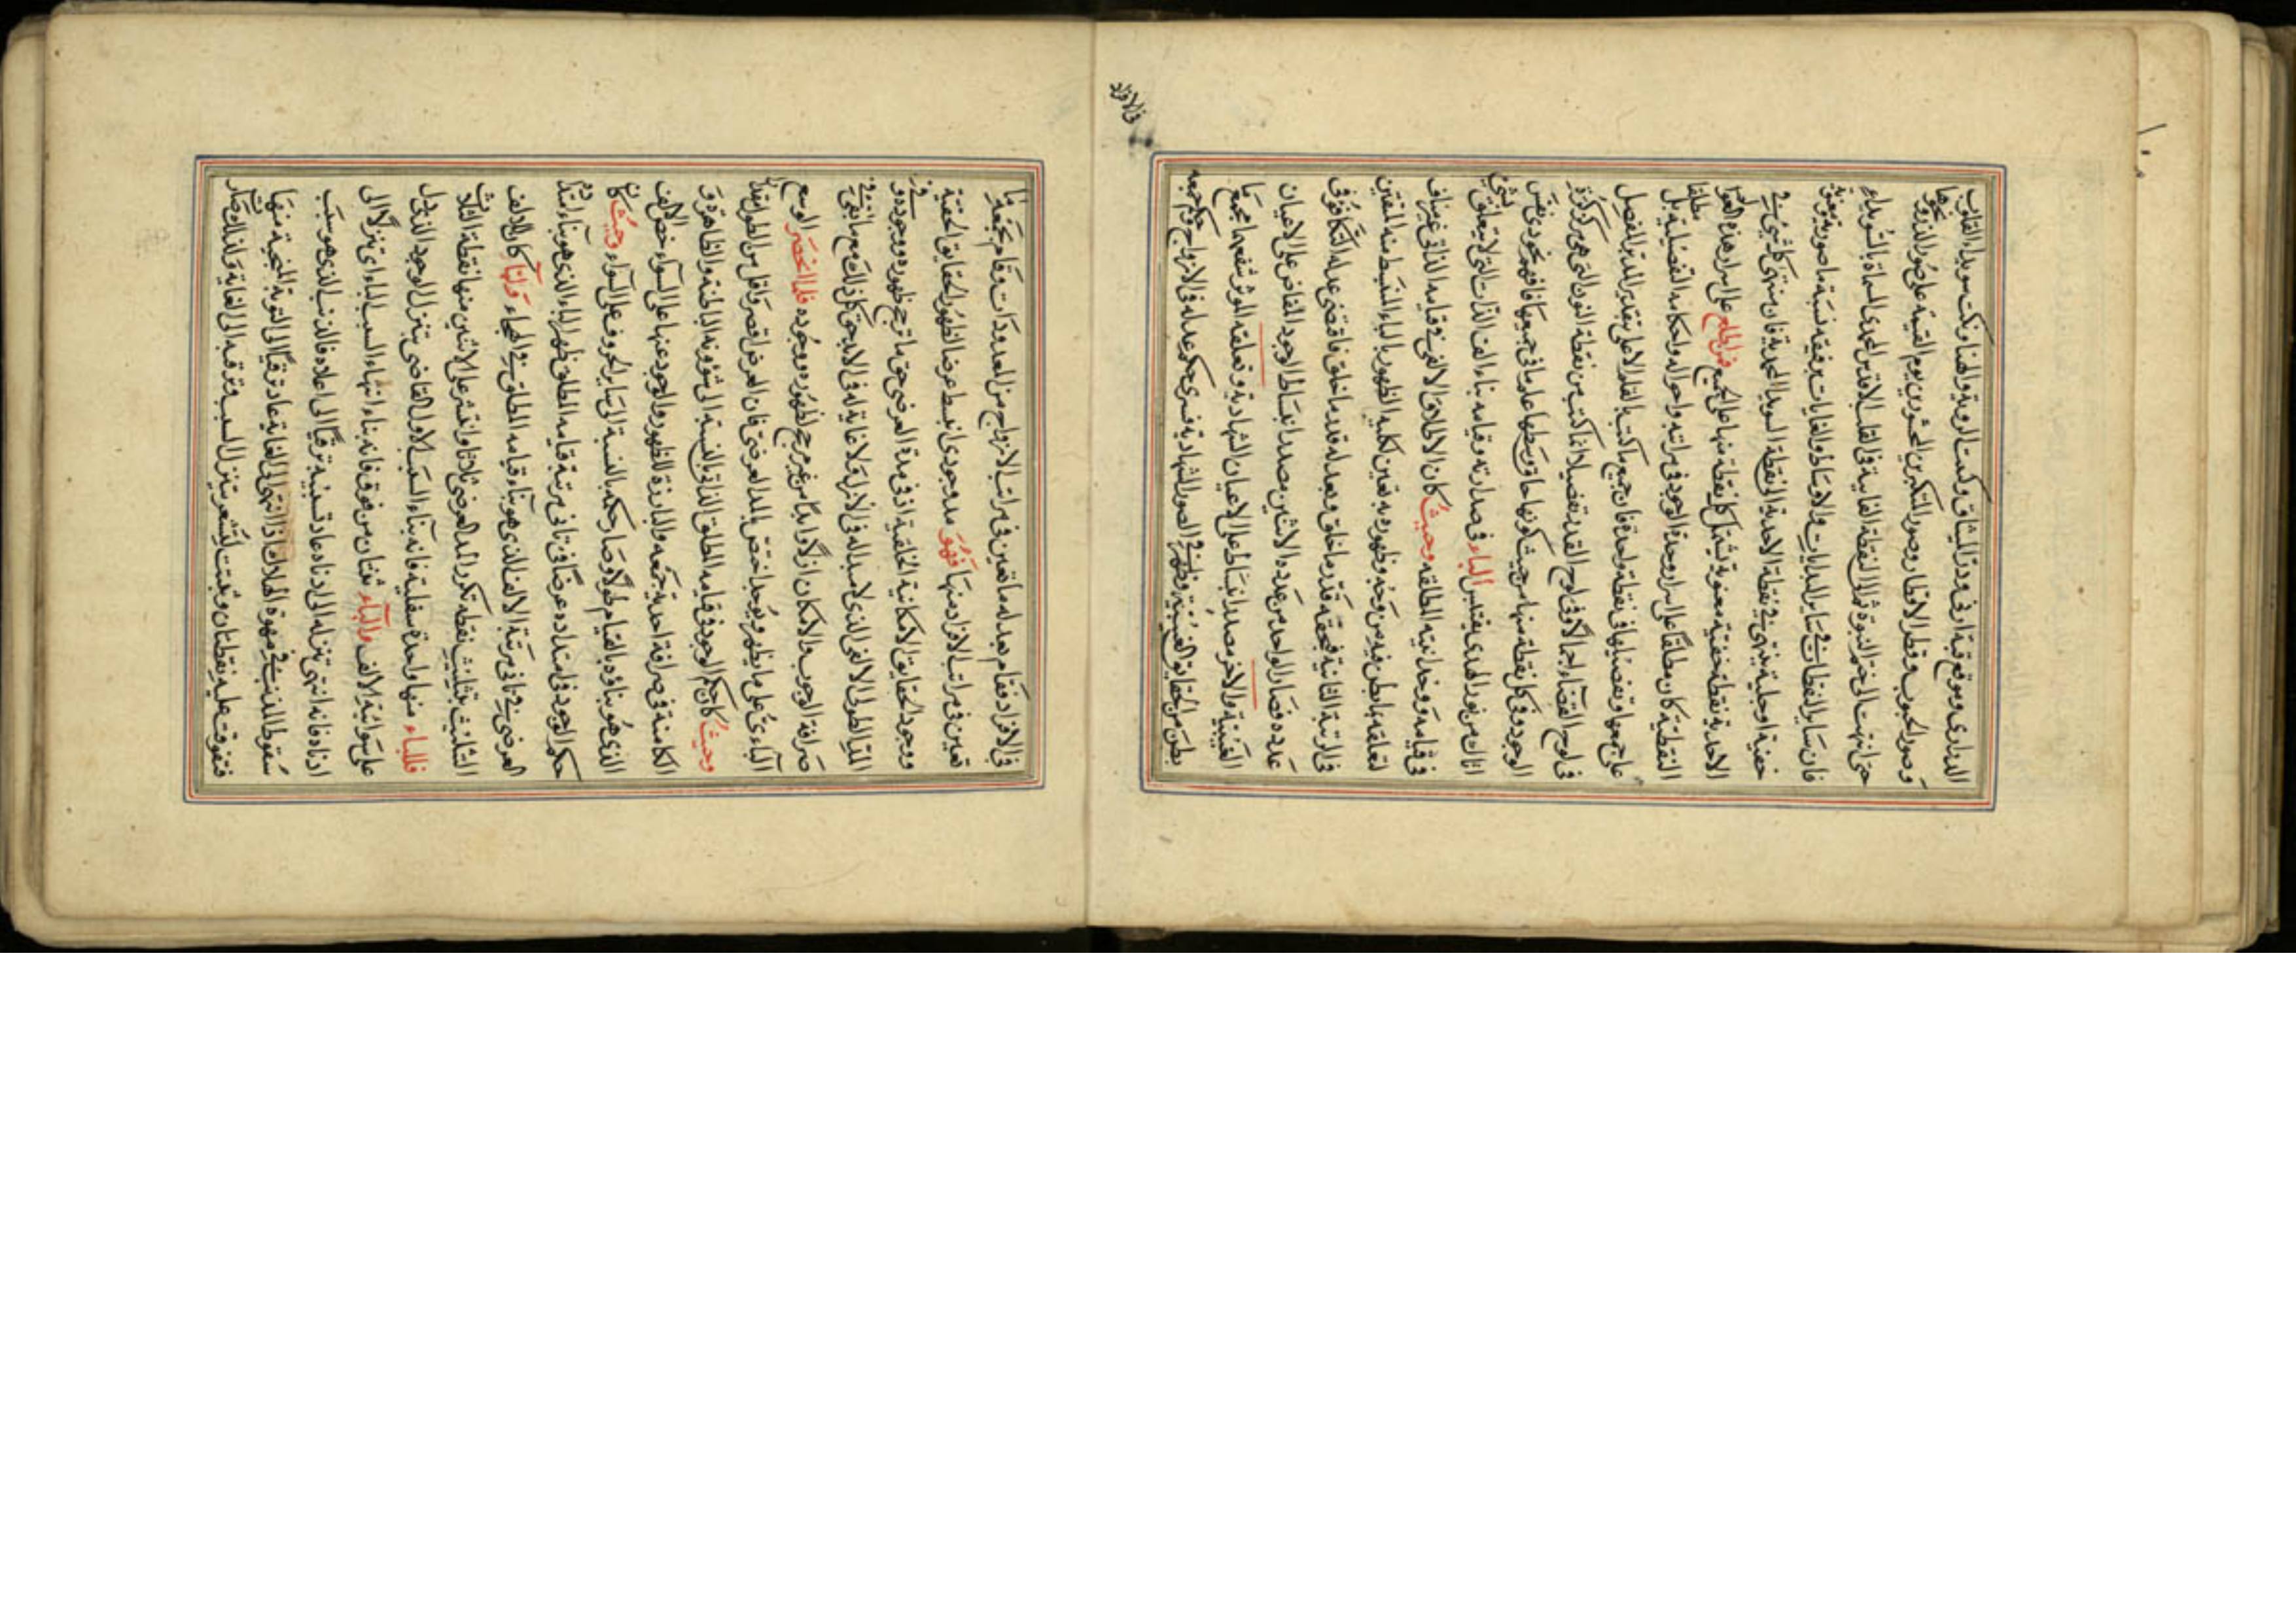 الدراري وموقع قبة ارنى ودرة الميثاق وكتب الروية والهنا ونكت سويدا القلوب
وصور الحبوب وقطر الاقطار وصور المتكبرين المحشورين يوم القيمة على صور الذر ونحوها
حتى انتهت الى ختم النبوة ثم الى النقطة الغايية في القلب الاقدس المحمدي المسماة بالسويداء
فان ساير النقطات في ساير البدايات والاوساط والغايات رقيقه نسبة ما صورية معنوية
خفية او جلية ينتهى في نقطة الاحدية الى نقطة السويدا المحمدية فان منتهى كل شئ في
الاحدية نقطة خفية معنوية تشتمل كل نقطة منها على الجميع فمن اطلع على اسرار هذه
النقطية كان مطلقا على اسرار وحدة الوجود في مراتبه واحواله واحكامه التفصيلية بل مطلقا
على جمعها وتفصيلها في نقطة واحدة فان جميع ما كتبه القلم الاعلى بتقدير المدبر المفصل
في لوح القضاء اجمالا وفي لوح القدر تفصيلا انما كتبه من نقطة النون التي هي مركز دائرة
الوجود وفي كل نقطة منها من حيث كونها حاق وسطها علم ما في جميعها فافهم تحوذى نفس
اناك من نور الهدى يقتبس الباء في صدارته وقيامه بناء الف الذات التي لا تعلق لشئ
في قيامه ووحدانيته المطلقه وحيث كان الاطلاق الالفي في قيامه الذاتي غير مناف
لتعلقه بما بطن فيه من وجه وظهوره به تعين لكلية الظهور بالباء المنبسط منه المتعين
في الرتبة الثانية فحقه قدر ما خلق وبعد له قدر ما خلق فاقتضى عدله التكافؤ في
عدده فصار الواحد من عدده الاثنين مصدر انبساط الوجود الفائض على الاعيان
الغيبية والاخر مصدر انبساط على الاعيان الشهادية وتعلقه الموثر شفعها بجمع ما
بطن من الحقايق الغيبية وظهر في الصور الشهادية فسرى حكم عدله في الازواج حكم جمعه
في الافراد
في الافراد فقام بعدله ما تعين في مراتب الازواج من المعدودات وقام بجمعه ما
تعين في مراتب الافراد منها فهو مد وجودى انبسط عرضا لظهور الحقايق الحقية
ووجود الحقايق الامكانية الخلقية اذ في مدة العرضى حق ما ترجح ظهوره ووجوده في
المد الطولى الالفى الذى لا مبدا له في الازل ولا غاية له في الابد حق كل ذلك مع ما بقى في
صرافة الوجوب والامكان ازلا وابدا من غير مرجح لظهوره ووجوده فلما انحصر الوسع
البآءى على ما يظهر ويوجد اختص بالمد العرضى فان العرض اقصر واقل من الطول المقدار
وحيث كان حكم الوجود في قيامه المطلق الذاتى بالنسبة الى شؤونه الباطنة والظاهرة و
الكامنة في صرافة احدية جمعه والبارزة للظهور والوجود عنها على السواء خص الالف
الذى هو بناؤه بالقيام طولا وصار حكمه بالنسبة الى ساير الحروف على السواء وحيث كان
حكم الوجود في امتداده عرضا في ثانى مرتبة قيامه المطلق ظهر الباء الذى هو بناء امتداده
العرضى في ثانى مرتبة الالف الذى هو بناء قيامه المطلق في الهجاء ولما كان للالف
التثليث بتثليث نقطه تكرر المد العرضى ثلاثا وانقسم على الاثنين منها نقطه الثلاث
فللباء منها واحدة سفلية فانه بناء السبب الاول القاضى بتنزل الوجود الذى دل
على سوائية الالف والتاء ثنتان من فوق فانه بناء انتهاء السبب البائى تنزلا الى
ادناه فانه انتهى تنزله الى ادناه عاد تسبيبه ترقيا الى اعلاه فالذنب الذى هو سبب
سقوط المذنب في مهوة الهلاك اذا انتهى الى الغاية عاد ترقيا الى التوبة المنجية منها
فتفوقت عليه نقطتان وثبتت لتشعر بتنزل السبب وترقيه الى الغاية ولذلك صار